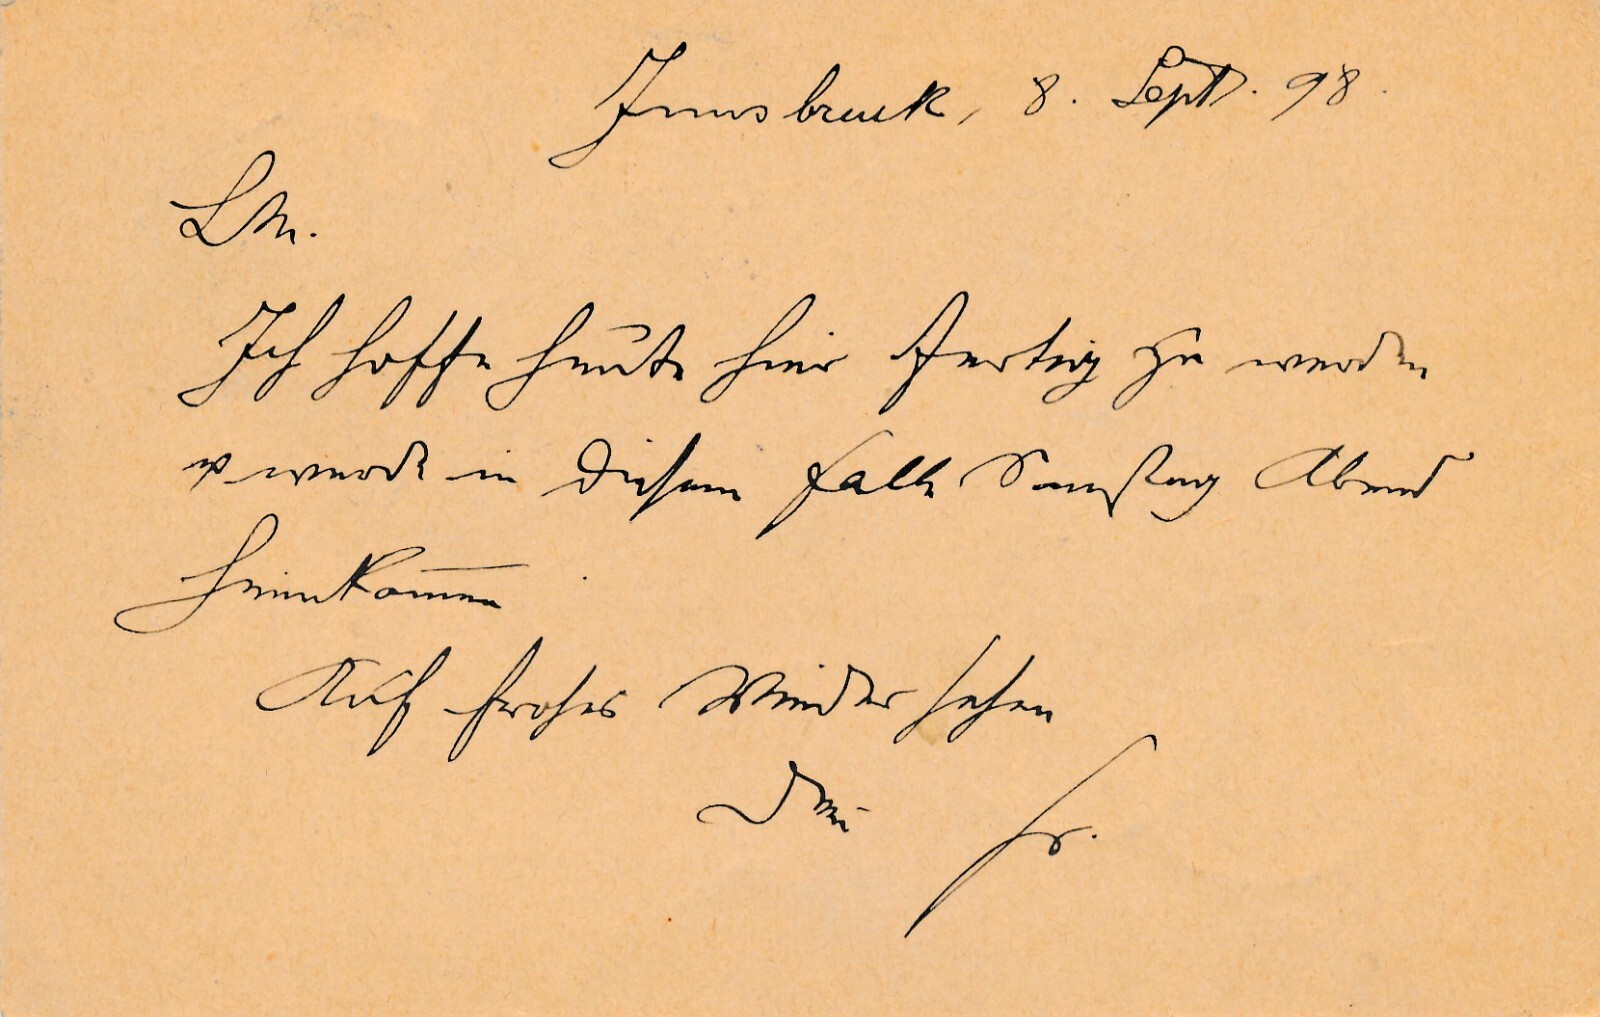 Innsbruck, 8. Sept. 98.
L M.
Ich hoffe heute hier fertig zu werden
u werde in diesem Falle Samstag Abend
heimkom̅en
Auf frohes Wiedersehen
Dein Fr.